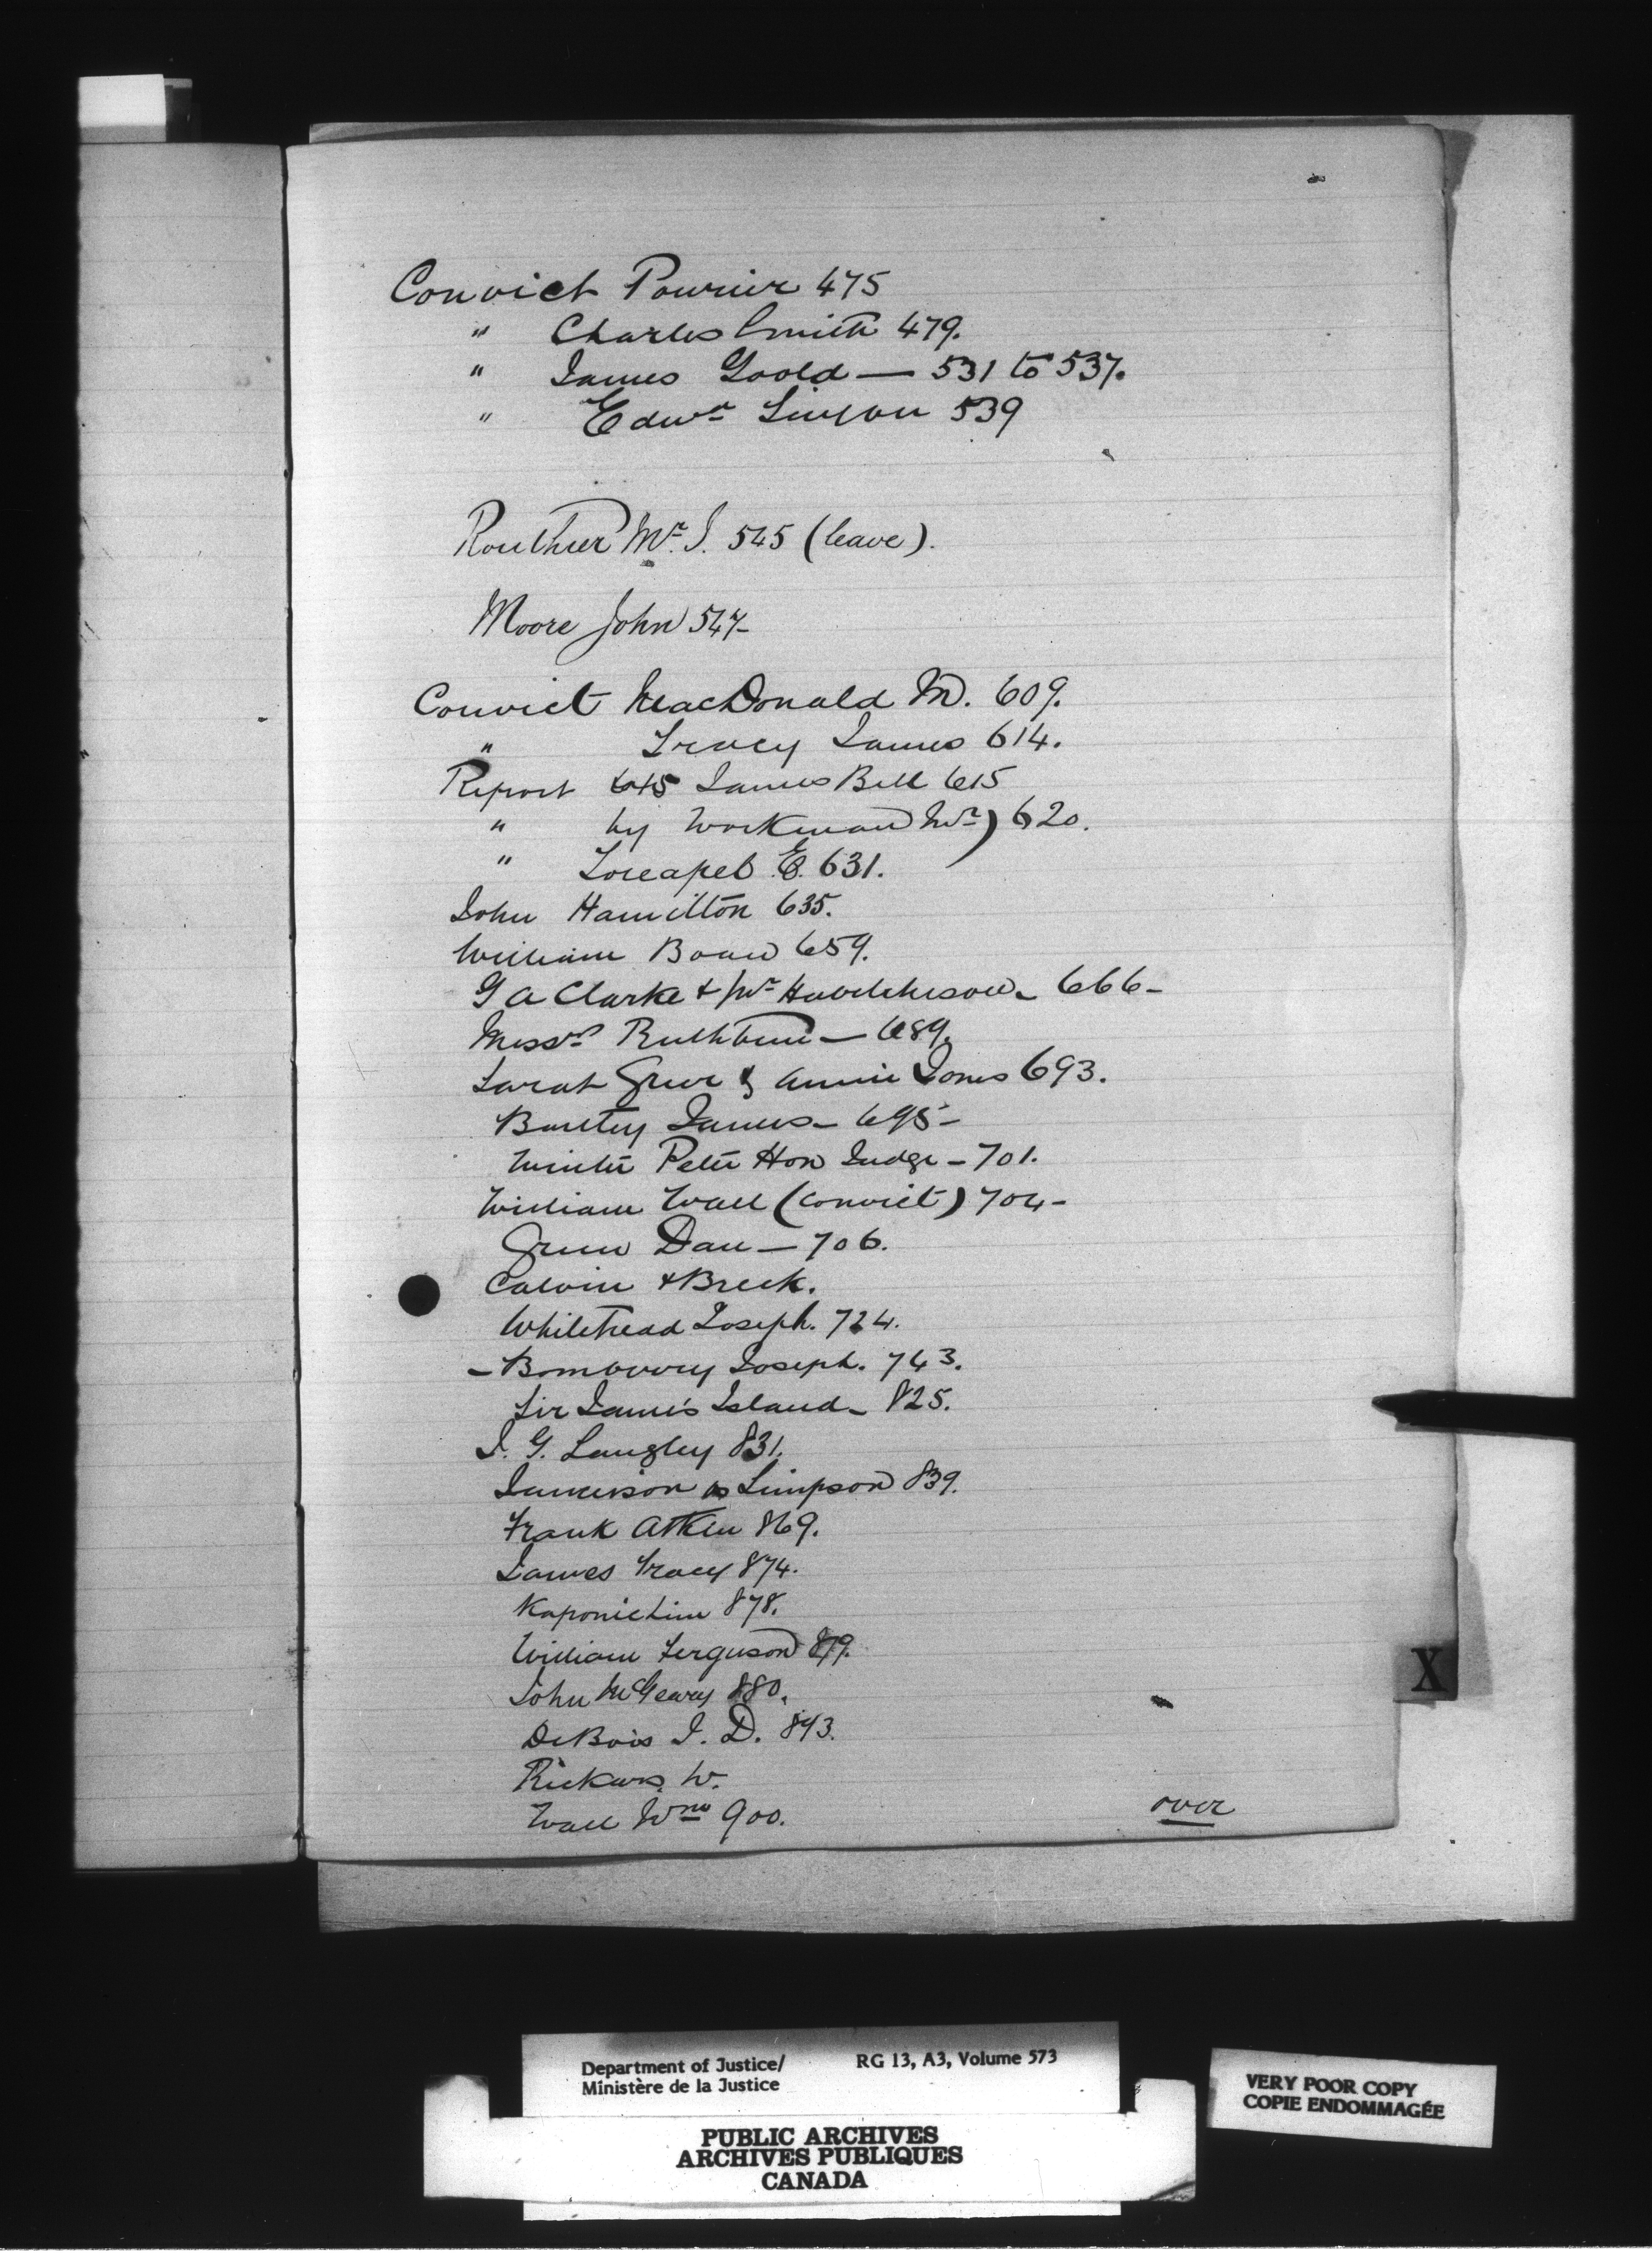 Convict Pourier 475
" Charles Smith 479.
" James Goold — 531 to 537.
" Edwd 539
Routhier Mr. J. 545 (leave).
Moore John 547-
Convict MacDonald M. 609.
" Tracy James 614.
Report 615 James Bell 615
" by Workman Wm) 620.
" E. 631.
John Hamilton 635.
William 659.
G A Clarke & Hutcheson - 666-
Messrs Rathbun — 689.
Sarah Greer & Annie Jones 693.
James - 695-
Peter Hon Judge - 701.
William Wall (convict) 704-
Green Dan — 706.
Calvin & Breck.
Whitehead Joseph. 724.
- Bomberry Joseph. 743.
Sir James Island - 825.
J. G. Langley 831.
Jamieson vs Simpson 839.
Frank Atken 869.
James Tracy 874.
Kaponichin 878.
William Ferguson 879.
John McGeary 880.
DeBois J. D. 893.
W.
Wall Wm 900.
over
X
Department of Justice/ RG 13, A3, Volume 573
Ministère de la Justice
PUBLIC ARCHIVES
ARCHIVES PUBLIQUES
CANADA
VERY POOR COPY
COPIE ENDOMMAGÉE